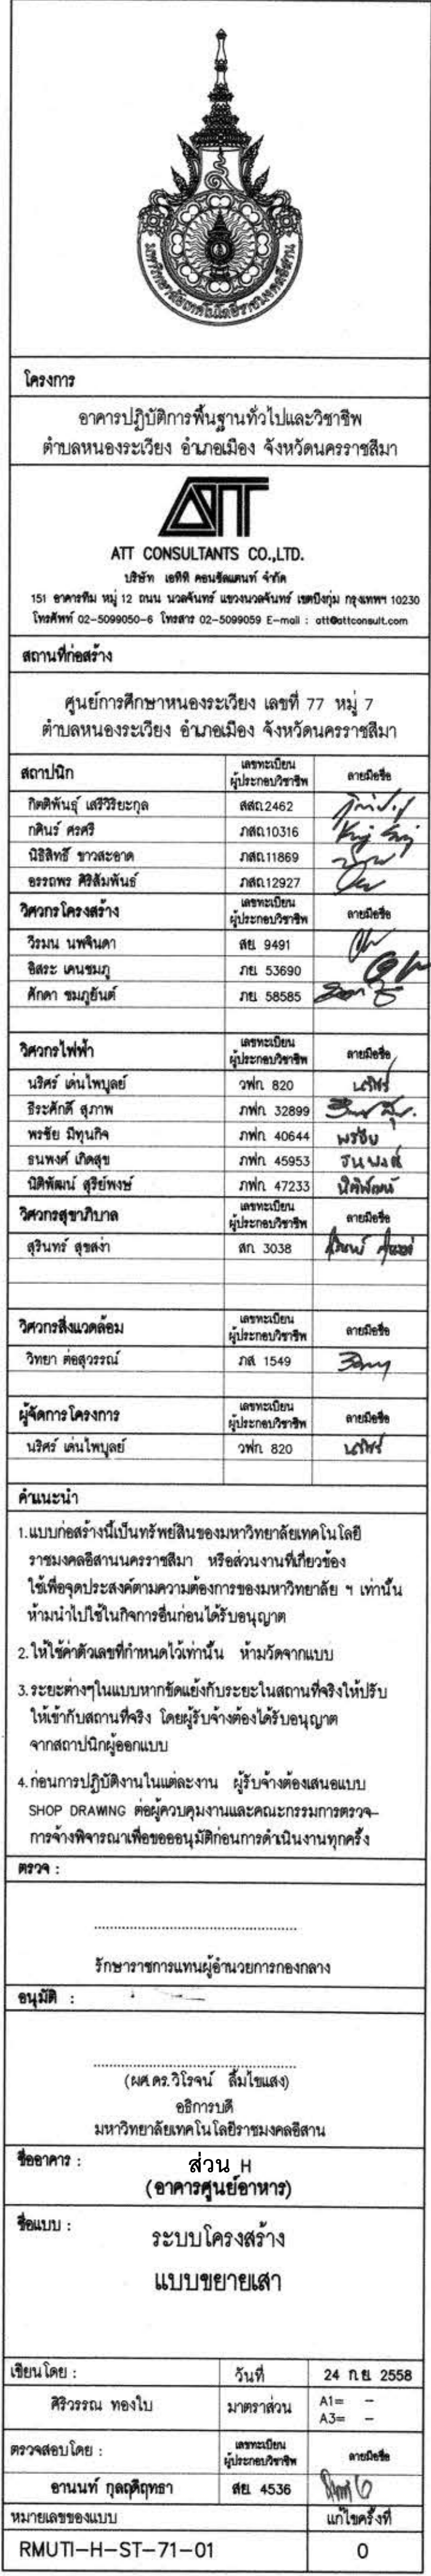 มหาวิทยาลัยเทคโนโลยีราชมงคลอีสาน
โครงการ
อาคารปฏิบัติการพื้นฐานทั่วไปและวิชาชีพ
ตำบลหนองระเวียง อำเภอเมือง จังหวัดนครราชสีมา
ATT
ATT CONSULTANTS CO.,LTD.
บริษัท เอทีที คอนซัลแตนท์ จำกัด
151 อาคารทีม หมู่ 12 ถนน นวลจันทร์ แขวงนวลจันทร์ เขตบึงกุ่ม กรุงเทพฯ 10230
โทรศัพท์ 02-5099050-6 โทรสาร 02-5099059 E-mail : att@attconsult.com
สถานที่ก่อสร้าง
ศูนย์การศึกษาหนองระเวียง เลขที่ 77 หมู่ 7
ตำบลหนองระเวียง อำเภอเมือง จังหวัดนครราชสีมา
สถาปนิก เลขทะเบียน ผู้ประกอบวิชาชีพ ลายมือชื่อ
กิตติพันธุ์ เสรีวิริยะกุล สสถ.2462
กคินร์ ศรศรี ภสถ.10316
นิธิสิทธิ์ ขาวสะอาด ภสถ.11869
อรรถพร ศิริสัมพันธ์ ภสถ.12927
วิศวกรโครงสร้าง เลขทะเบียน ผู้ประกอบวิชาชีพ ลายมือชื่อ
วีรมน นพจินดา สย. 9491
อิสระ เคนชมภู ภย. 53690
ศักดา ชมภูยันต์ ภย. 58585
วิศวกรไฟฟ้า เลขทะเบียน ผู้ประกอบวิชาชีพ ลายมือชื่อ
นริศร์ เด่นไพบูลย์ วฟก. 820 นริศร์
ธีระศักดิ์ สุภาพ ภฟก. 32899
พรชัย มีทุนกิจ ภฟก. 40644 พรชัย
ธนพงศ์ เกิดสุข ภฟก. 45953 ธนพงศ์
นิติพัฒน์ สุริย์พงษ์ ภฟก. 47233 นิติพัฒน์
วิศวกรสุขาภิบาล เลขทะเบียน ผู้ประกอบวิชาชีพ ลายมือชื่อ
สุรินทร์ สุขสง่า สก. 3038
วิศวกรสิ่งแวดล้อม เลขทะเบียน ผู้ประกอบวิชาชีพ ลายมือชื่อ
วิทยา ต่อสุวรรณ์ ภส. 1549
ผู้จัดการโครงการ เลขทะเบียน ผู้ประกอบวิชาชีพ ลายมือชื่อ
นริศร์ เด่นไพบูลย์ วฟก. 820 นริศร์
คำแนะนำ
1.แบบก่อสร้างนี้เป็นทรัพย์สินของมหาวิทยาลัยเทคโนโลยี
ราชมงคลอีสานนครราชสีมา หรือส่วนงานที่เกี่ยวข้อง
ใช้เพื่อจุดประสงค์ตามความต้องการของมหาวิทยาลัย ฯ เท่านั้น
ห้ามนำไปใช้ในกิจการอื่นก่อนได้รับอนุญาต
2.ให้ใช้ค่าตัวเลขที่กำหนดไว้เท่านั้น ห้ามวัดจากแบบ
3.ระยะต่างๆในแบบหากขัดแย้งกับระยะในสถานที่จริงให้ปรับ
ให้เข้ากับสถานที่จริง โดยผู้รับจ้างต้องได้รับอนุญาต
จากสถาปนิกผู้ออกแบบ
4.ก่อนการปฏิบัติงานในแต่ละงาน ผู้รับจ้างต้องเสนอแบบ
SHOP DRAWING ต่อผู้ควบคุมงานและคณะกรรมการตรวจ-
การจ้างพิจารณาเพื่อขออนุมัติก่อนการดำเนินงานทุกครั้ง
ตรวจ :
รักษาราชการแทนผู้อำนวยการกองกลาง
อนุมัติ :
(ผศ.ดร.วิโรจน์ ลิ้มไขแสง)
อธิการบดี
มหาวิทยาลัยเทคโนโลยีราชมงคลอีสาน
ชื่ออาคาร : ส่วน H
(อาคารศูนย์อาหาร)
ชื่อแบบ : ระบบโครงสร้าง
แบบขยายเสา
เขียนโดย : วันที่ 24 ก.ย. 2558
ศิริวรรณ ทองใบ มาตราส่วน A1= -
A3= -
ตรวจสอบโดย : เลขทะเบียน ผู้ประกอบวิชาชีพ ลายมือชื่อ
อานนท์ กุลฤดีฤทธา สย. 4536
หมายเลขของแบบ แก้ไขครั้งที่
RMUTI-H-ST-71-01 0